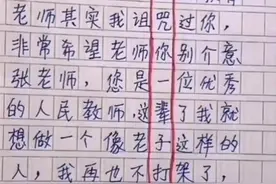 老师其实我诅咒过你，
非常希望老师你别介意
张老师，您是一位优秀
的人民教师，这辈了我就
想做一个像老子这样的
人，我再也不打架了，